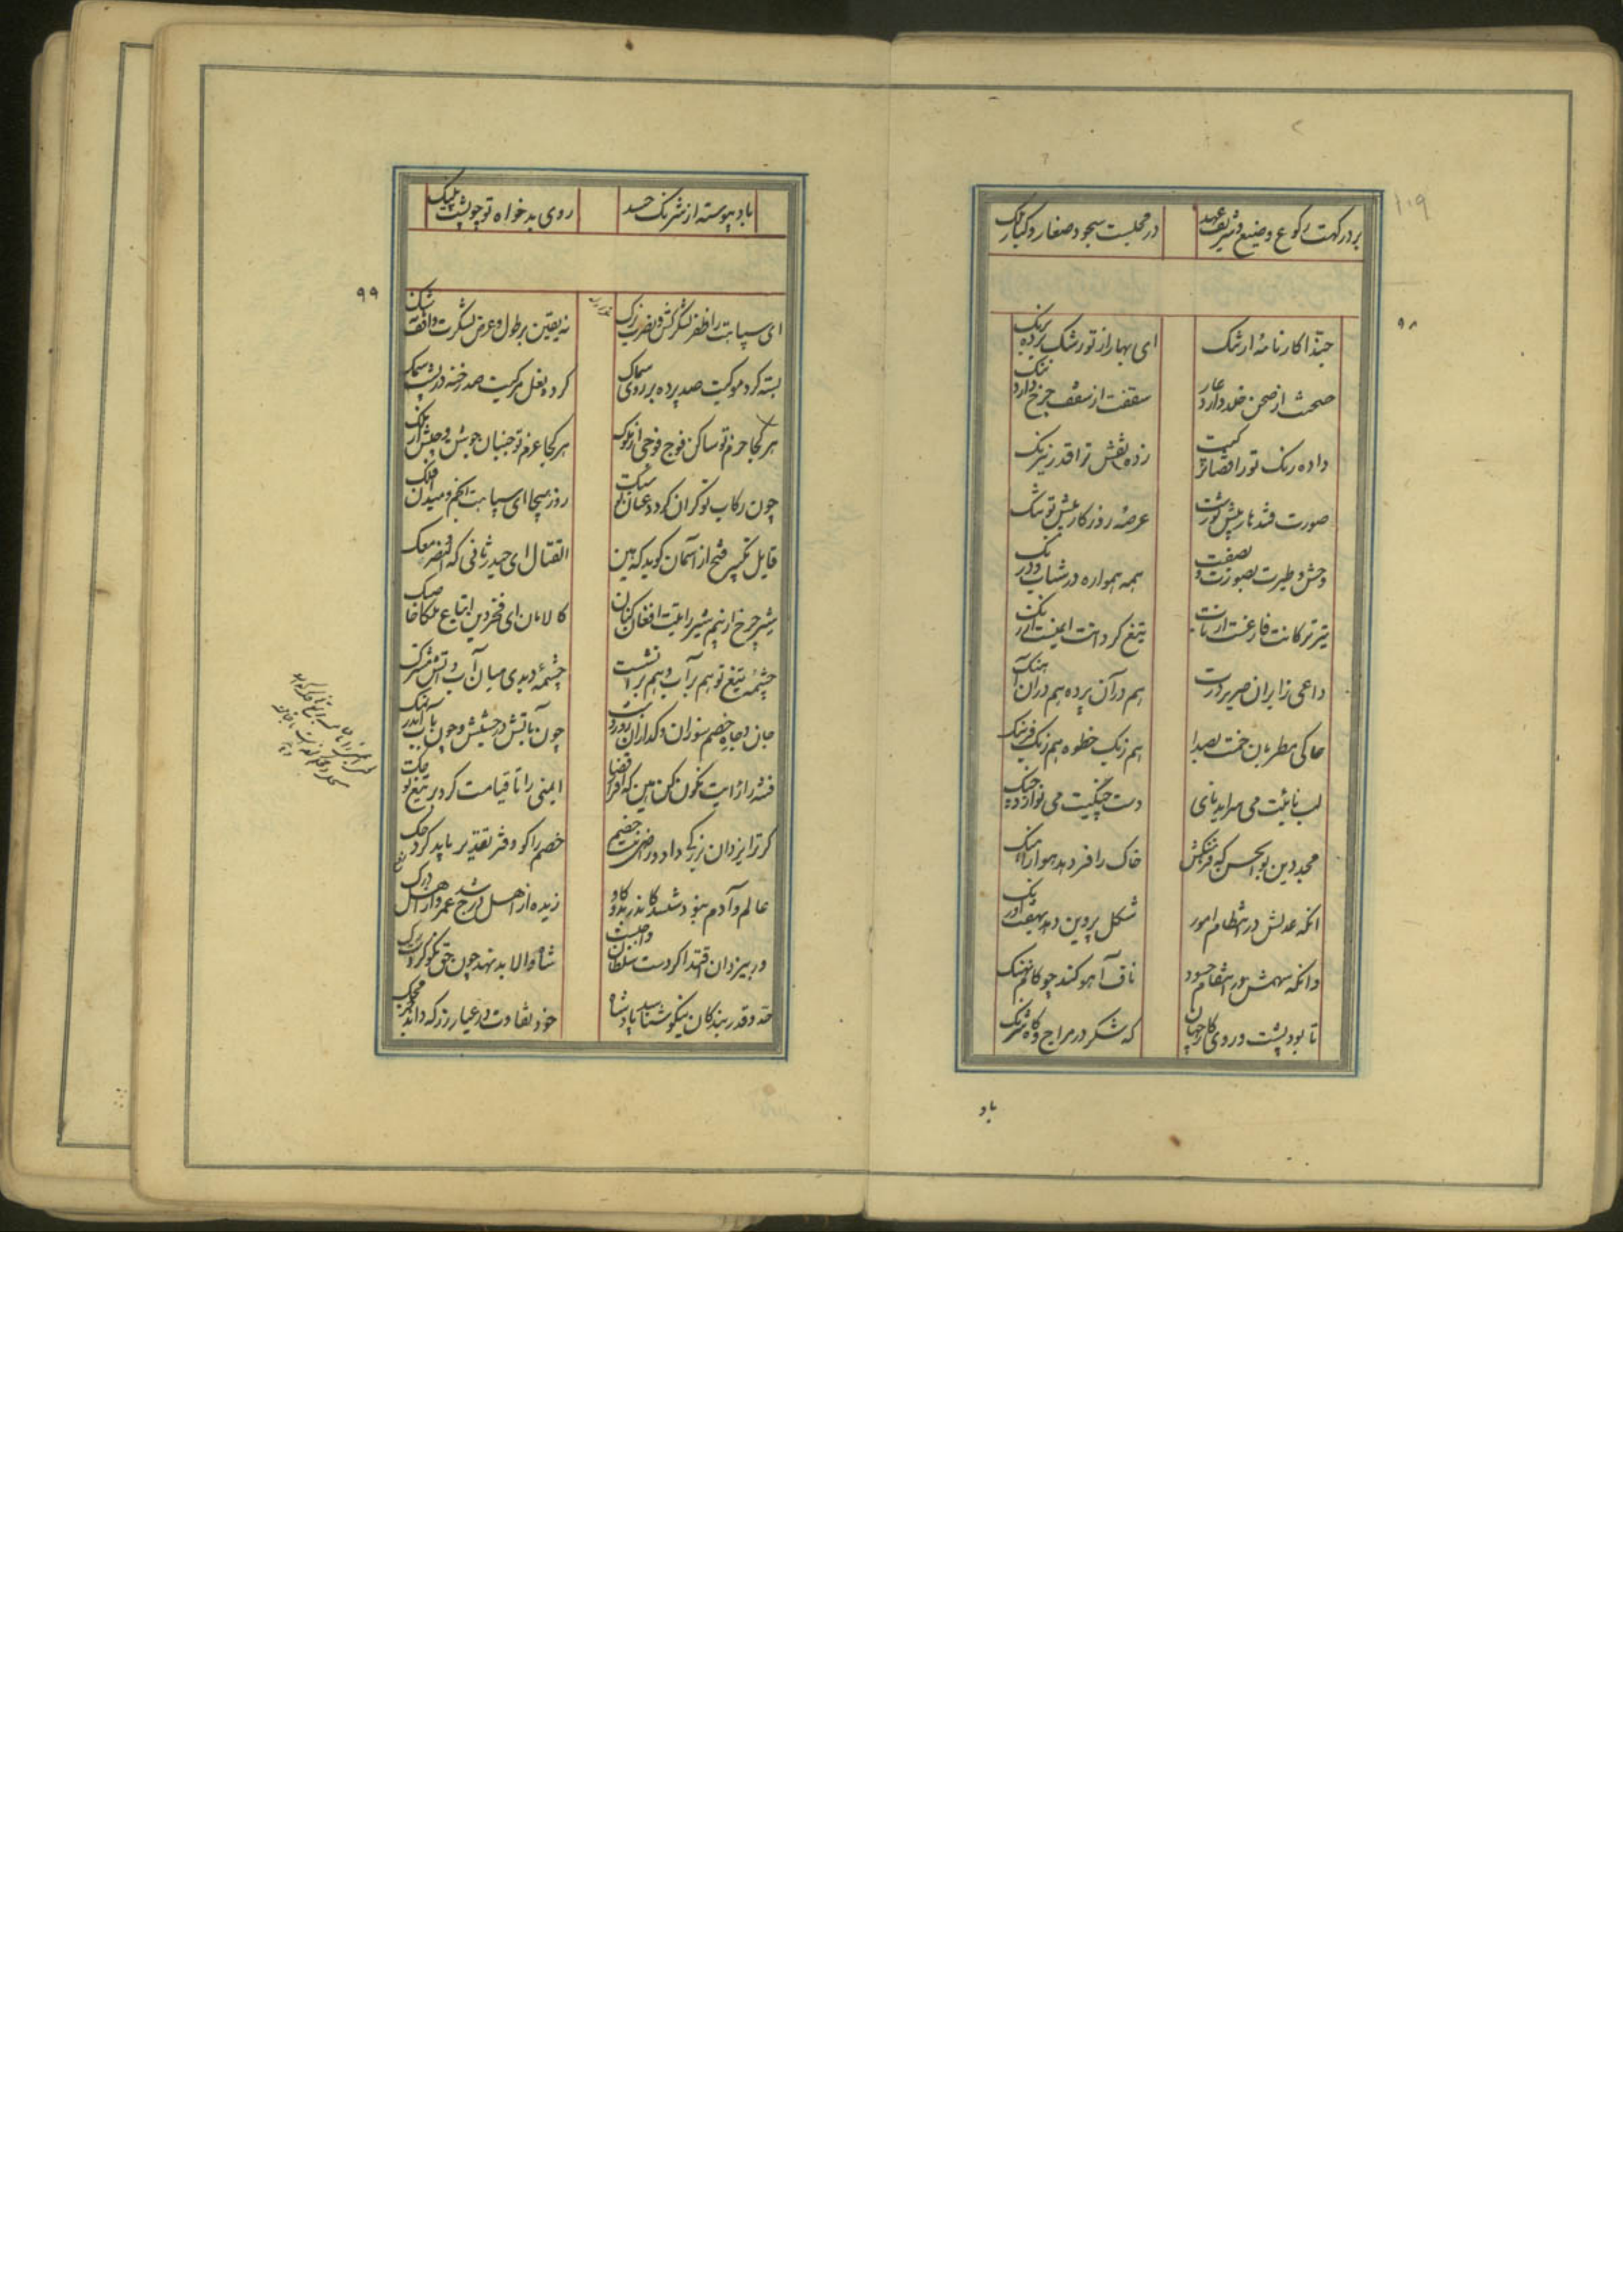 ۱۰۹
بر درکهت رکوع وضیع و شریف عهد در مجلست سجود صغار و کبار ملک
۹۸
حبذا کارنامهٔ ارتنک ای بهار از تو رشک برده برنک
صحنت از صحن خلد دارد عار سقفت از سقف چرخ دارد ننک
داده رنک ترا قضا ترکیت زده نقش ترا قدر نیرنک
صورت قندهار پیش تو زشت عرصه روزکار پیش تو تنک
وحش و طیرت بصورت و بصفت همه همواره در شتاب و درنک
تیر ترکانت فارغست از تاب تیغ کردانت ایمنست از زنک
داعی زایران صریر درت هم در آن پرده هم در آن آهنک
حاکی مطربان خمت بصدا هم زنک خطوه هم زنک فرسنک
لب نائیت می سراید نای دست چنکیت می نوازد چنک
مجد دین بو الحسن که فرهنکش خاک را فر دهد هوا را هنک
انکه عدلش در انتظام امور شکل پروین دهد بهفت اورنک
وانکه سهمش در انتقام حسود ناف آهو کند چو کام نهنک
تا بود پشت و روی کار جهان که شکر در مزاج و کاه شرنک
باد
باد پیوسته از شرنک حسد روی بدخواه تو چو پشت پلنک
۹۹
ای سپاهت را ظفر لشکر کش و نصرت یزک نه یقین بر طول و عرض لشکرت واقف نه شک
بسته کرد موکبت صد پرده بر روی سماک کرده نعل مرکبت صد رخنه در پشت سمک
هر کجا حزم تو ساکن فوج فوجی از ملوک هر کجا عزم تو جنبان جوش و جیش از ملک
چون رکاب تو کران کردد عنان تو سبک روز هیجا ای سپاهت انجم و میدان فلک
قایل تکبیر فتح از آسمان کوید که هین القتال ای حیدر ثانی که النصر معک
شیر چرخ از بیم شیر رایتت افغان کنان کالامان ای فخر دین ابتاع ملکا خاصک
چشمهٔ تیغ تو هم پر آب و هم پر آتشست چشمهٔ دیدی میان آب و آتش مشترک
جان و جاه خصم سوزان و کدازان روز و شب چون بآتش در حشیش و چون بآب اندر نمک
فتنه را رایت نکون کن هین که اقرار قضا ایمنی را تا قیامت کرد بر تیغ تو چک
کر ترا یزدان بزرکی داد و راضی نیست خصم خصم را کو دفتر تقدیر باید کرد حک
عالم و آدم نبودستند کاندر بدو کار زبده از اهل درج شد عمرو از اهل درک
ور بیزدان اقتدا کردست سلطان واجبست شاه والا بد نهد چون حق نکو کردست رک
حد و قدر بندکان نیکو شناسد پادشاه خود تفاوت در عیار زر که داند جز محک